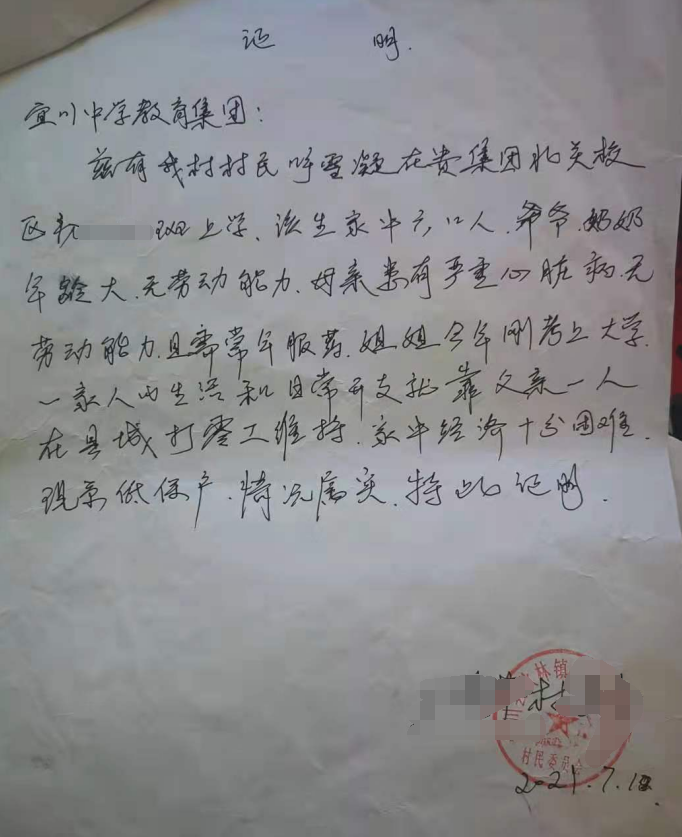 证 明.
宜川中学教育集团:
兹有我村村民呼雪凝在贵集团北关校
区 班上学、该生家中六口人.爷爷.奶奶
年龄大.无劳动能力.母亲患有严重心脏病.无
劳动能力.且需常年服药.姐姐今年刚考上大学.
一家人的生活和日常开支就靠父亲一人
在县城打零工维持.家中经济十分困难.
现系低保户.情况属实.特此证明.
林镇
村
村民委员会
2021.7.18